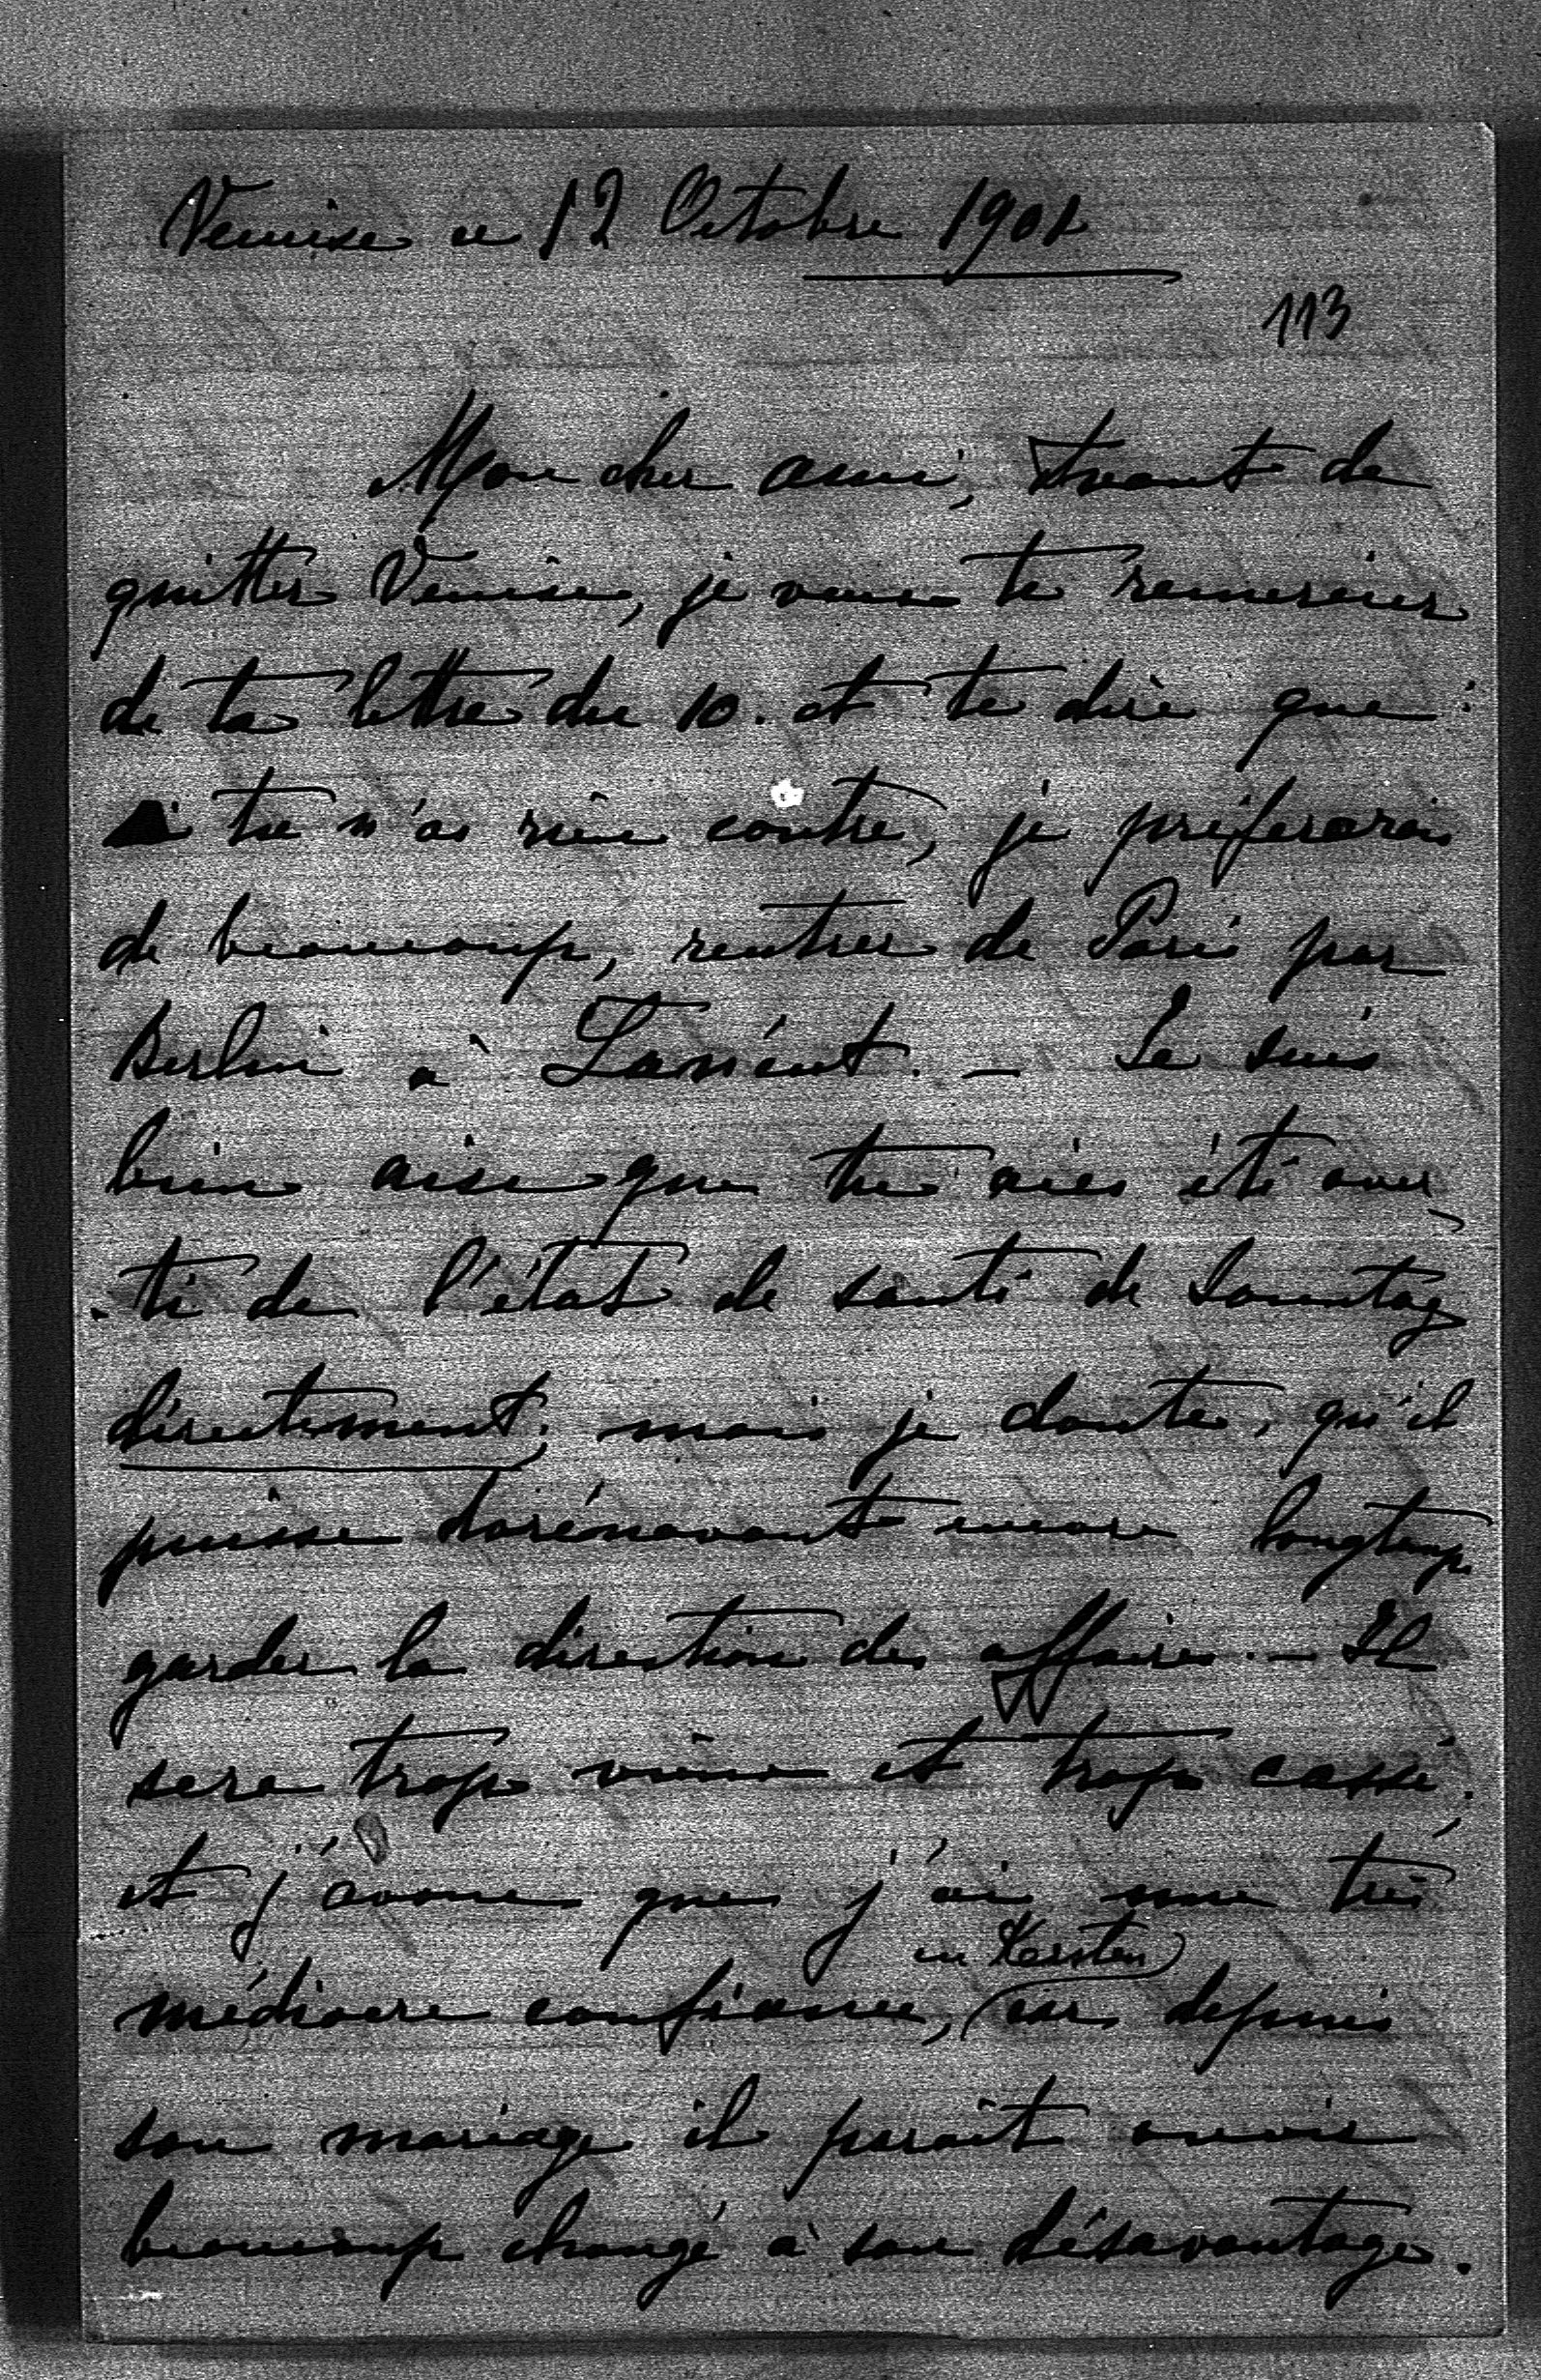 Venise ce 12 Octobre 1901
113
Mon cher ami, Avant de
quitter Venise, je veux te remercier
de ta lettre du 10. et te dire que:
si tu n'as rien contre, je préfererais
de beaucoup, rentrer de Paris par
Berlin à Łańcut. – Je suis
bien aise que tu aies été aver-
-ti de l'état de santé de Sonntag
directement; mais je doute, qu'il
puisse dorénavant encore longtemps
garder la direction des affaires. – Il
sera trop vieux et trop cassé;
et j'avoue que j'ai une très
en Kersten
médiocre confiance, car depuis
son mariage il paraît avoir
beaucoup changé à son désavantage.